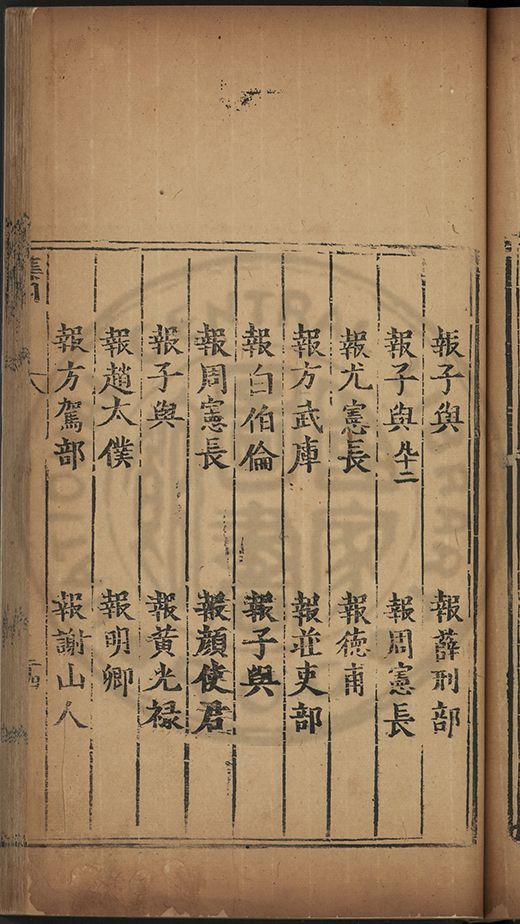 報子與 報薛刑部
報子與 廾二 報周憲長
報尤憲長 報德甫
報方武庫 報莊吏部
報白伯倫 報子與
報周憲長 報顏使君
報子與 報黃光祿
報趙太僕 報明卿
報方駕部 報謝山人